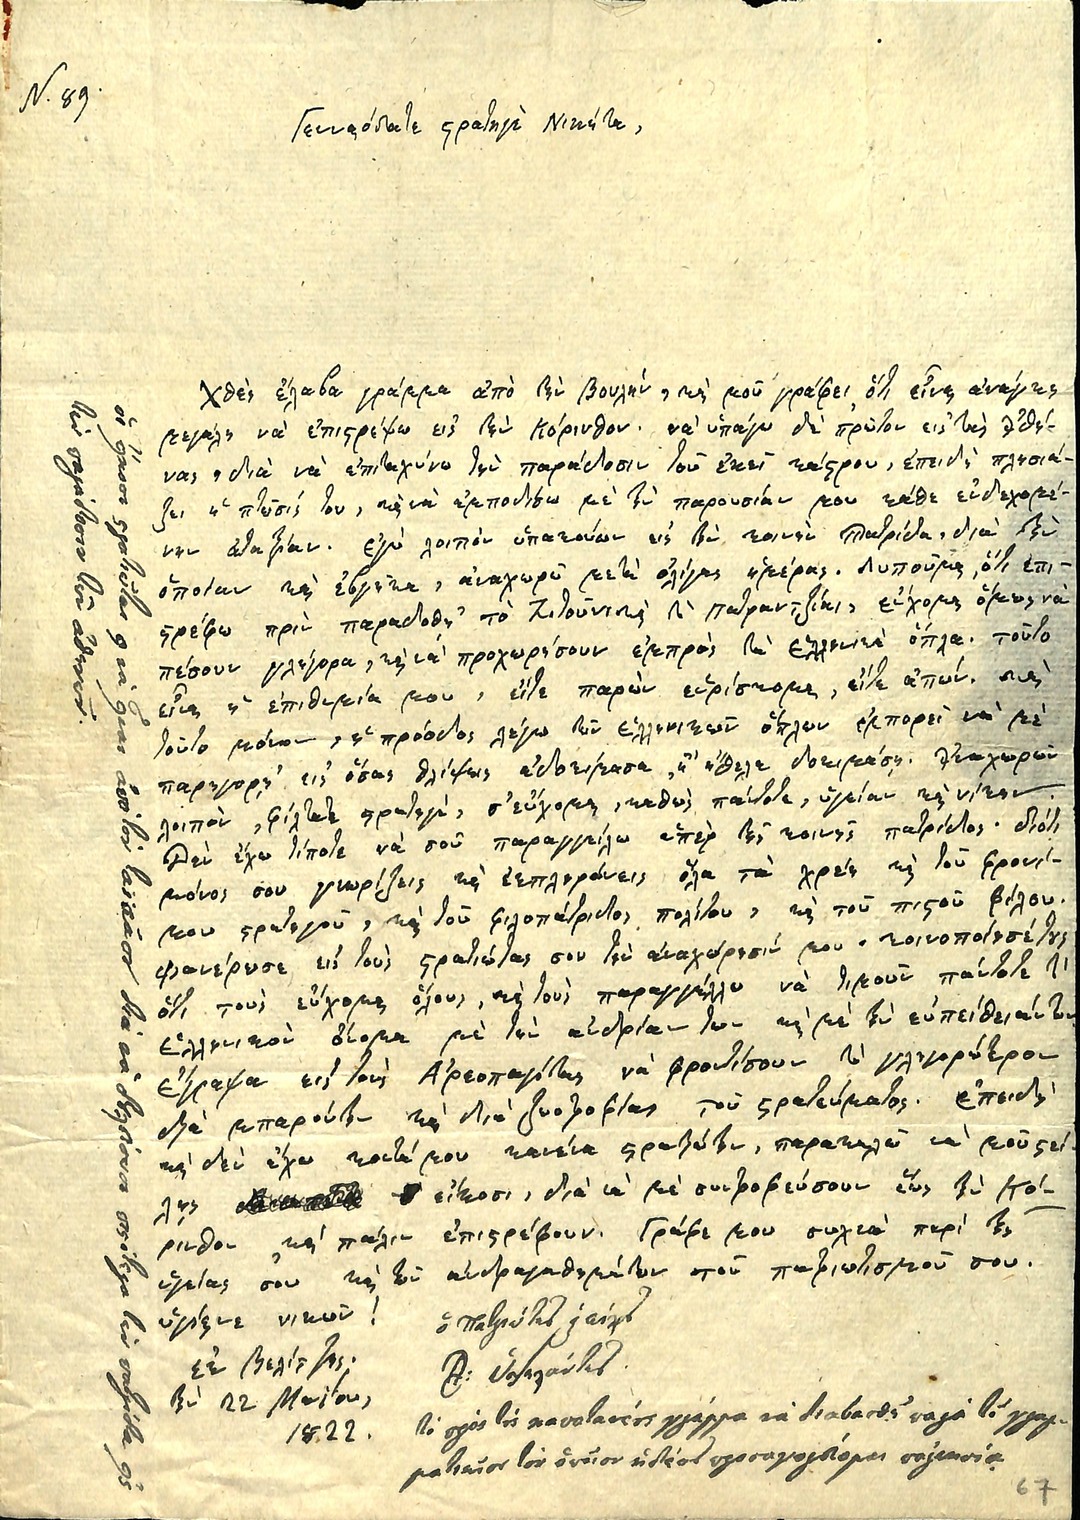 Ν. 89.
Γενναιότατε στρατηγὲ Νικήτα,
Χθὲς ἔλαβα γράμμα ἀπὸ τὴν Βουλήν, καὶ μοῦ γράφει, ὅτι εἶναι ἀνάγκη
μεγάλη νὰ ἐπιστρέψω εἰς τὴν Κόρινθον. νὰ ὑπάγω δὲ πρῶτον εἰς τὰς Ἀθή-
νας, διὰ νὰ ἐπιταχύνω τὴν παράδοσιν τοῦ ἐκεῖ κάστρου, ἐπειδὴ πλησιά-
ζει ἡ πτῶσίς του, καὶ νὰ ἐμποδίσω μὲ τὴν παρουσίαν μου κάθε ἐνδεχομέ-
νην ἀταξίαν. Ἐγὼ λοιπὸν ὑπακούων εἰς τὴν κοινὴν Πατρίδα, διὰ τὴν
ὁποίαν καὶ ἐβγῆκα, ἀναχωρῶ μετὰ ὀλίγας ἡμέρας. Λυποῦμαι, ὅτι ἐπι-
στρέφω πρὶν παραδοθῇ τὸ Ζιτοῦνι καὶ ἡ Πατραντζίκι, εὔχομαι ὅμως νὰ
πέσουν γλήγορα, καὶ νὰ προχωρήσουν ἐμπρὸς τὰ ἑλληνικὰ ὅπλα. τοῦτο
εἶναι ἡ ἐπιθυμία μου, εἴτε παρὼν εὑρίσκομαι, εἴτε ἀπών. καὶ
τοῦτο μόνον, ἡ πρόοδος λέγω τῶν ἑλληνικῶν ὅπλων ἐμπορεῖ νὰ μὲ
παρηγορῇ εἰς ὅσας θλίψεις ἐδοκίμασα, ἢ ἤθελα δοκιμάσῃ. Ἀναχωρῶν
λοιπὸν, φίλτατε στρατηγέ, σ' εὔχομαι, καθὼς πάντοτε, ὑγείαν καὶ νίκην.
Δὲν ἔχω τίποτε νὰ σοῦ παραγγείλω ὑπὲρ τῆς κοινῆς πατρίδος· διότι
μόνος σου γνωρίζεις καὶ ἐκπληρώνεις ὅλα τὰ χρέη καὶ τοῦ φρονί-
μου στρατηγοῦ, καὶ τοῦ φιλοπάτριδος πολίτου, καὶ τοῦ πιστοῦ φίλου.
Φανέρωσε εἰς τοὺς στρατιώτας σου τὴν ἀναχώρησίν μου. κοινοποίησέ τους
ὅτι τοὺς εὔχομαι ὅλους, καὶ τοὺς παραγγέλλω νὰ τιμοῦν πάντοτε τὸ
ἑλληνικὸν ὄνομα μὲ τὴν ἀνδρίαν των καὶ μὲ τὴν εὐπείθειάν των
Ἔγραψα εἰς τοὺς Ἀρεοπαγίτας νὰ φροντίσουν τὸ γληγορώτερον
διὰ μπαρούτην καὶ διὰ ζωοτροφίας τοῦ στρατεύματος. Ἐπειδὴ
καὶ δὲν ἔχω κοντά μου κανένα στρατιώτην, παρακαλῶ νὰ μοῦ στεί-
λῃς εἴκοσι, διὰ νὰ μὲ συντροφεύσουν ἕως τὴν Κό-
ρινθον, καὶ πάλιν ἐπιστρέφουν. Γράφε μου συχνὰ περὶ τῆς
ὑγείας σου καὶ τῶν ἀνδραγαθημάτων τοῦ πατριωτισμοῦ σου.
ὑγίαινε νικῶν!
ὁ Πατριώτης
Δ: Ὑψηλάντης.
ἐκ Βελίτζης.
τὴν 22 Μαΐου,
1822.
τὸ πρὸς τοὺς καπεταναίους γράμμα νὰ διαβασθῇ παρὰ τοῦ γραμ-
ματικοῦ
τὴν παράδοσιν τῶν Ἀθηνῶν.
67